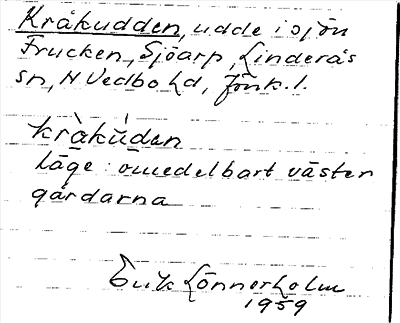 Kråkudden, udde i sjön
Frucken, Sjöarp, Linderås
sn, N Vedbo hd, Jönk. l.
kràkúden
Läge: omedelbart väster
gårdarna
Erik Lönnerholm
1959